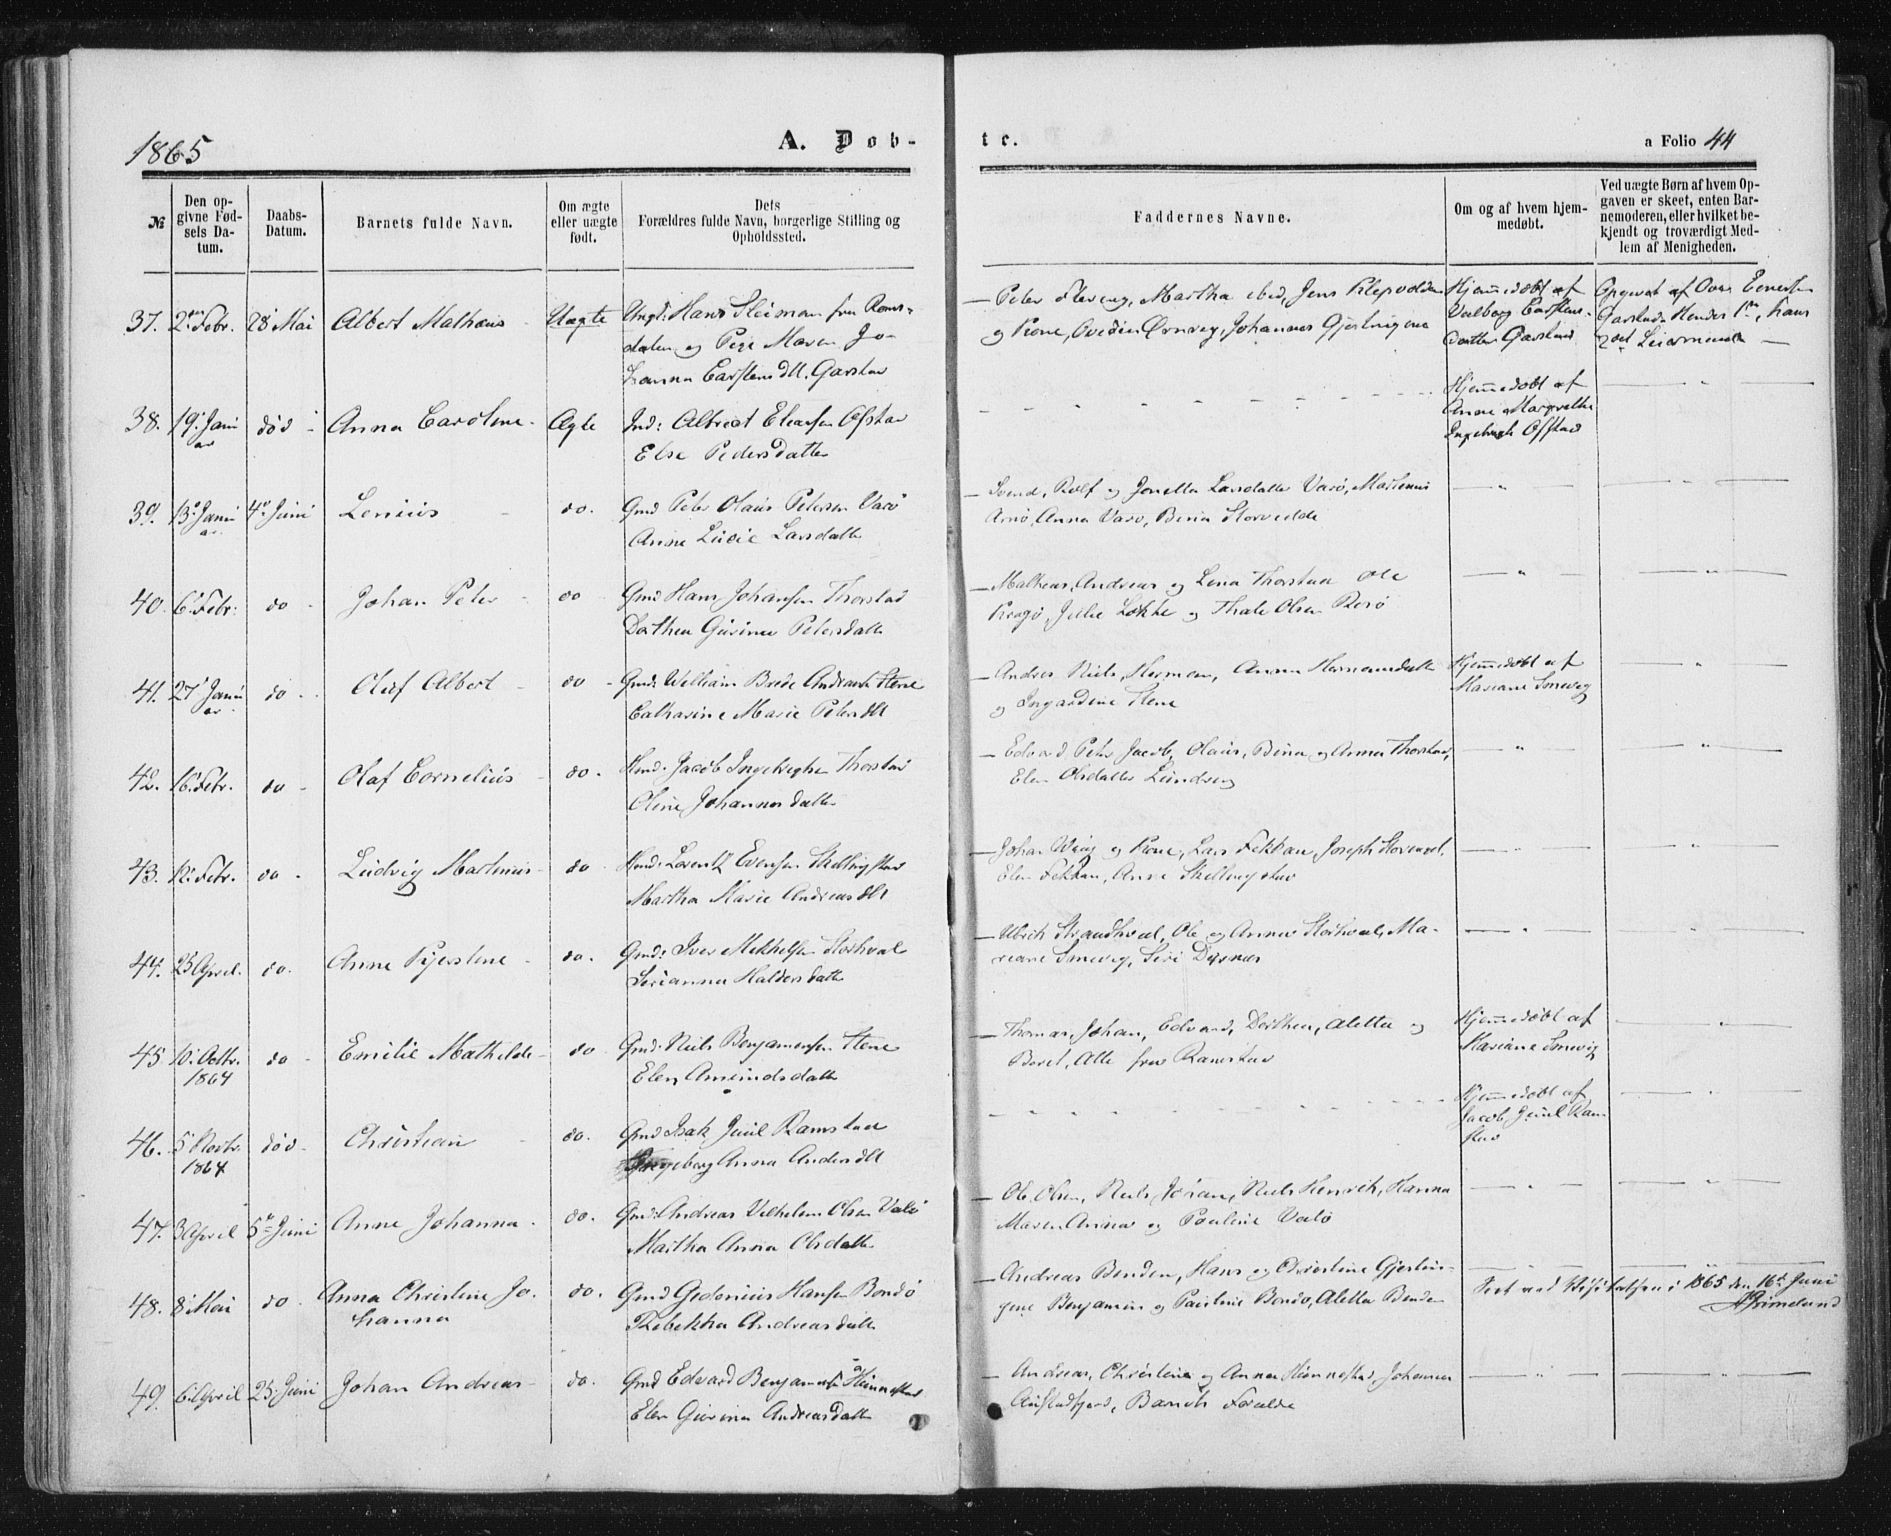 1865
A. Døb-
te.
a Folio 44
№
Den op-
givne Fød-
sels Da-
tum.
Daabs-
Datum.
Barnets fulde Navn.
Om ægte
eller uægte
født.
Dets
Forældres fulde Navn, borgerlige Stilling og
Opholdssted.
Faddernes Navne.
Om og af hvem hjem-
medøbt.
Ved uægte Børn af hvem Op-
gaven er skeet, enten Bar-
nemoderen, eller hvilket be-
kjendt og troværdigt Med-
lem af Menigheden.
37. 2den Febr. 28 Mai Albert Mathæus Uægte Ungk: Hans Steiman fra Roms-
dalen og Pige Maren Jo-
hanna Carstensdtt. Garstad
Peter Martha ibid, Jens Klepvolden
og Kone, Johannes Gjertingene
Hjemmedøbt af
Valborg Carstens-
datter Garstad
Opgivet af
Garstad
38. 19 Janu
ar død Anna Caroline Ægte Ind: Albrect Eliasen Ofstad
Else Pedersdatter
Hjemmedøbt af
Anne Margrethe
Ofstad
39. 13 Janu
ar 4de Juni Lenius do. Gmd Peter Olaus Petersen Varø
Anne Lucie Larsdatter
Svend, Rolf og Jonetta Larsdatter Varø, Martinus
Arnø, Anna Varø, Beria
40. 6 Febr: do Johan Peter do Gmd Hans Johansen Thorstad
Dorthea Gurina Petersdatter
Matheas, Andreas og Lena Thorstad Ole
Julie Løkke og Thale Olsen
41. 27 Janu
ar do Oluf Albert do Gmd: William Brede Andreas Stene
Catharine Marie Petersdtt
Anders Niels, Herman, Anna Hermansdatter
og Ingardine Stene
Hjemmedøbt af
Mariane Smevig
42. 16 Febr. do Olaf Cornelius do. Hmd: Jacob Ingebrigtsen Thorstad
Oline Johannesdatter
Edvard Peter Jacob, Olaus, Bina og Anna Thorstad,
Elen Olsdatter Lundseng
43. 12 Febr. do Ludvig Martinus do Hmd: Lorentz Evensen Skillingstad
Martha Marie Andreasdtt
Johan Wiig og Kone, Lars Fekkan, Joseph
Elen Fekkan, Anne Skillingstad
44. 25 April. do. Anne Kjerstine do. Gmd: Iver Mikkelsen Storhval
Serianna Haldorsdatter
Ulrich Strandhval, Ole og Anna Storhval, Ma-
riane Smevig, Seri Dypnæs
45 10 Octbr.
1864 do Emilie Mathilde do Gmd: Niels Benjaminsen Stene
Elen Amundsdatter
Thomas, Johan, Edvard, Dorthea, Aletta og
Beret, Alle fra Ramstad
Hjemmedøbt af
Mariane Smevig
46. 5 Novbr.
1864 død Christian do. Gmd Isak Juul Ramstad
Ingeborg Anna Andersdtt
Hjemmedøbt af
Jacob Juul Ram
stad
47. 3 April 5te Juni Anne Johanna do. Gmd: Andreas Vilhelm Olsen Valø
Martha Anna Olsdatter
Ole Olsen, Niels Johan, Niels Henrik, Hanna
Maren Anna og Pauline Valø
48. 8 Mai do. Anna Christine Jo-
hanna do. Gmd Gedonius Hansen Bondø
Rebekka Andreasdatter
Andreas Benden, Hans og Christine Gjertin-
gene Benjamin og Pauline Bondø, Aletta Benden
Seet ved Visitatsen i 1865 den 16de Juni
A Grimelund
49. 6 April 25 Juni Johan Andreas do. Gmd Edvard Benjaminsen Heinnestad
Elen Gurina Andreasdatter
Andreas, Christina og Anna Heinnestad, Johannes